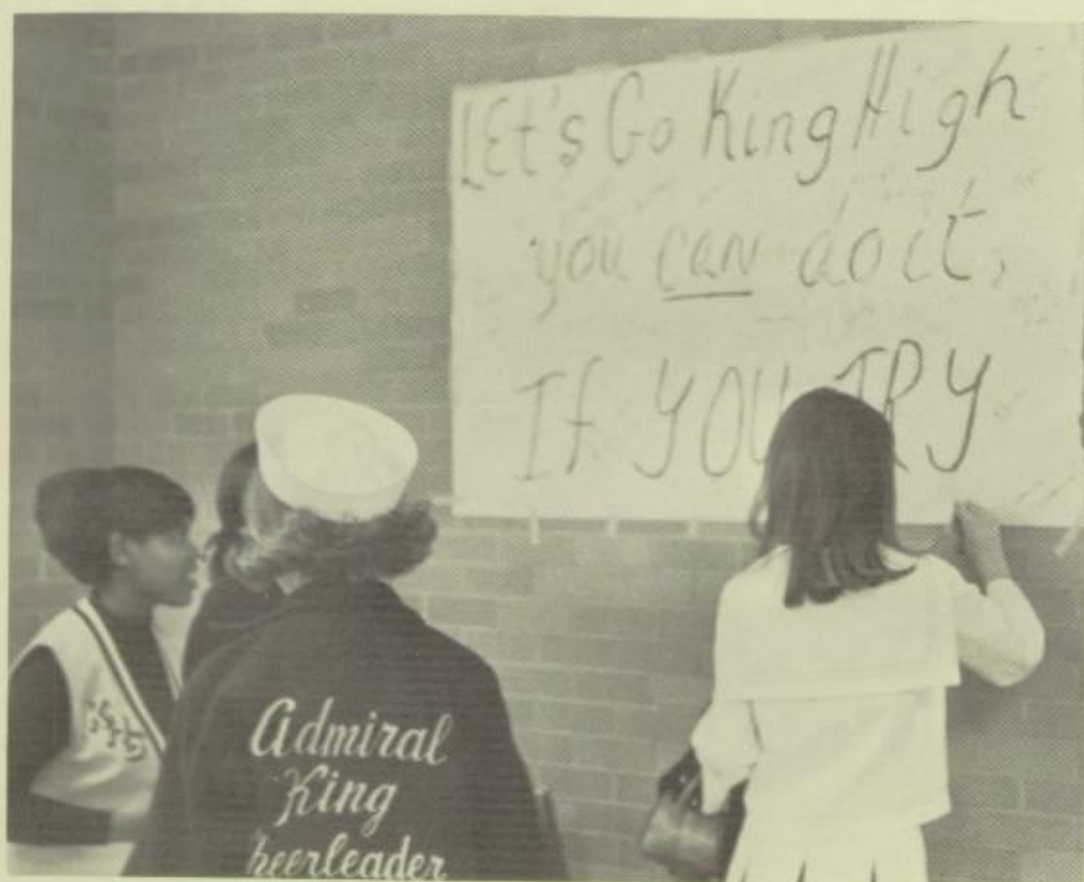 LEt's Go King High
you can do it,
If YOU TRY
Admiral
King
heerleader